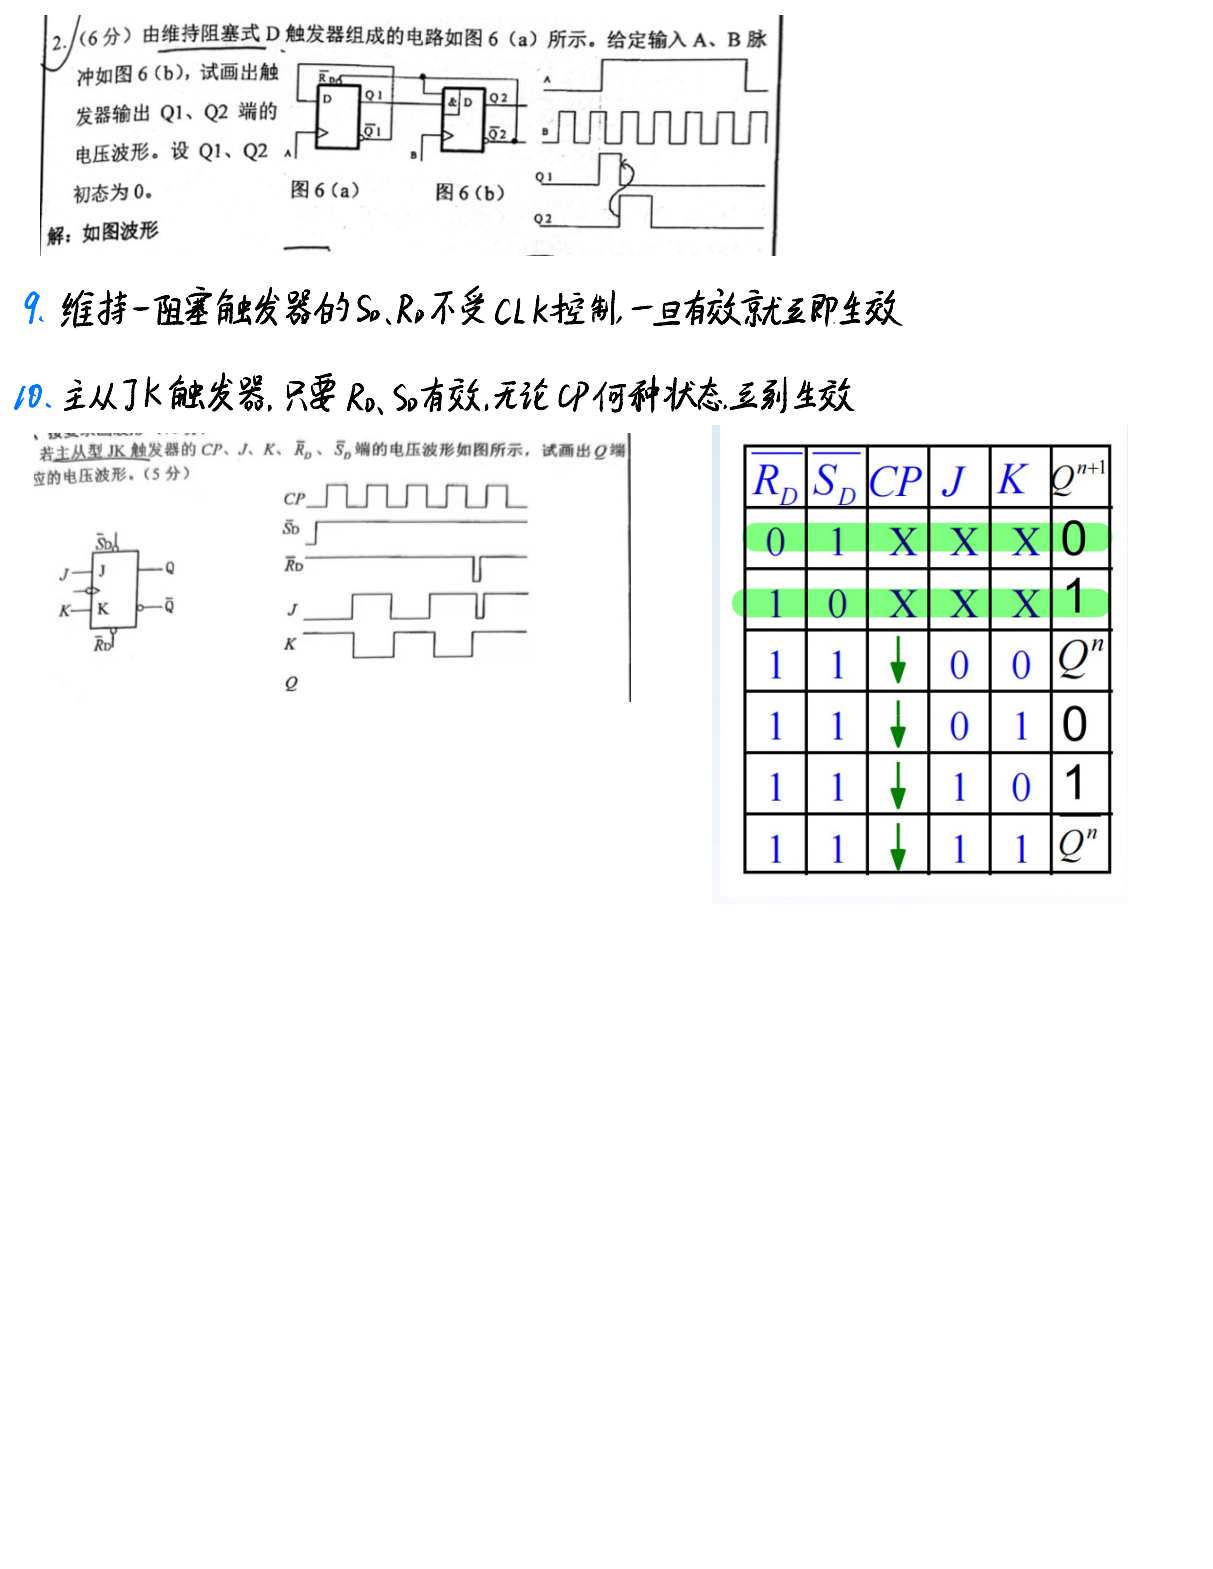 2. (6分) 由维持阻塞式 D 触发器组成的电路如图 6 (a) 所示。给定输入 A、B 脉
冲如图 6 (b), 试画出触
发器输出 Q1、Q2 端的
电压波形。设 Q1、Q2
初态为 0。
解: 如图波形
R̅D
D
Q1
Q̅1
A
&
D
Q2
Q̅2
B
图 6 (a)
图 6 (b)
A
B
Q1
Q2
9、维持-阻塞触发器的SD、RD不受CLK控制,一旦有效就立即生效
10、主从JK触发器,只要RD、SD有效,无论CP何种状态,立刻生效
若主从型 JK 触发器的 CP、J、K、R̅D、S̅D端的电压波形如图所示,试画出Q端
应的电压波形。(5 分)
S̅D
J
J
Q
K
K
Q̅
R̅D
CP
S̅D
R̅D
J
K
Q
R̅D S̅D CP J K Qⁿ⁺¹
0 1 X X X 0
1 0 X X X 1
1 1 ↓ 0 0 Qⁿ
1 1 ↓ 0 1 0
1 1 ↓ 1 0 1
1 1 ↓ 1 1 Q̅ⁿ